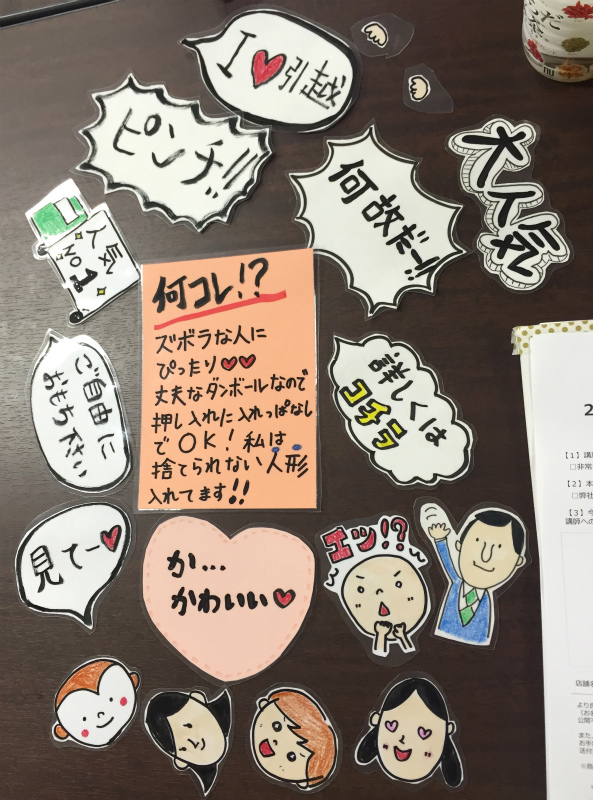 I♥引越
ピンチ!!
何故だー!!
大人気
人気
No.1
何コレ!?
ズボラな人に
ぴったり♥♥
丈夫なダンボールなので
押し入れに入れっぱなし
でOK！私は
捨てられない人形
入れてます!!
詳しくは
コチラ
ご自由に
おもち下さい
見てー♥
か…
かわいい♥
エッ!?
2
【1】講
□非常
【2】本
□弊社
【3】今
講師への
店舗名
より良
公開不
また、
お手数
送付